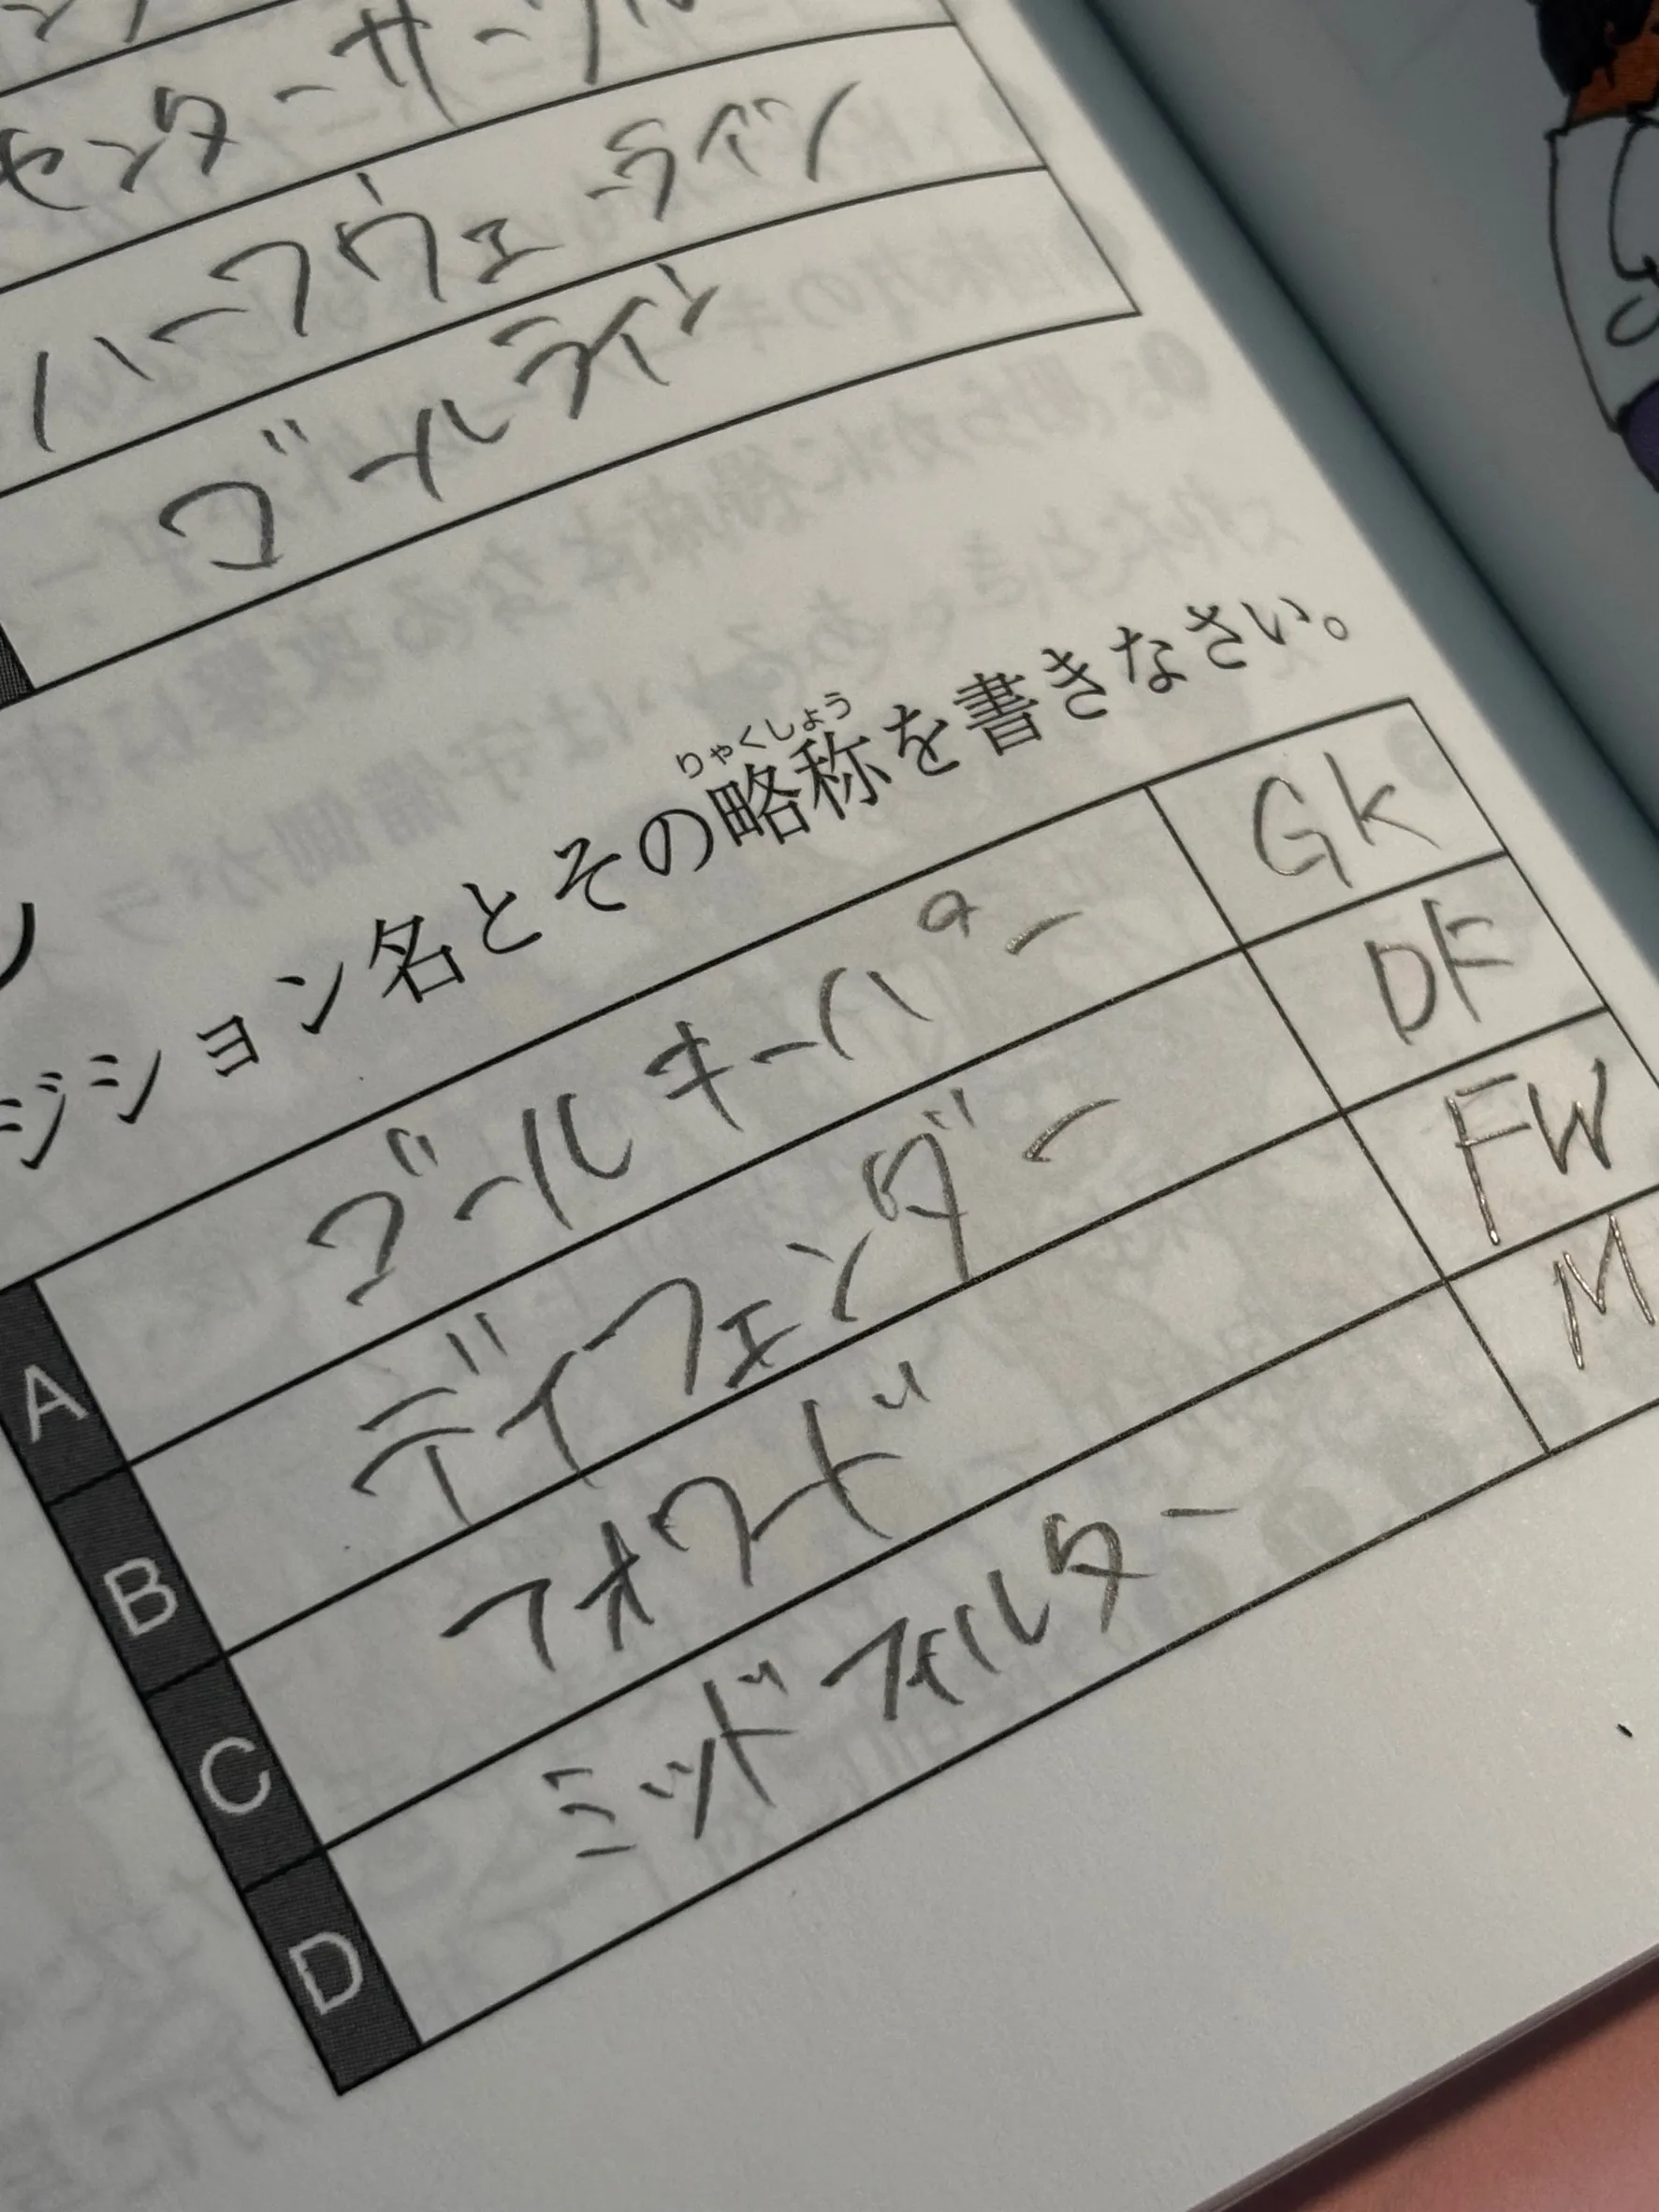 センターサークル
ハーフウェーライン
ゴールライン
ジション名とその略称を書きなさい。
りゃくしょう
A ゴールキーパー GK
B ディフェンダー DF
C フォワード FW
D ミッドフィルター M